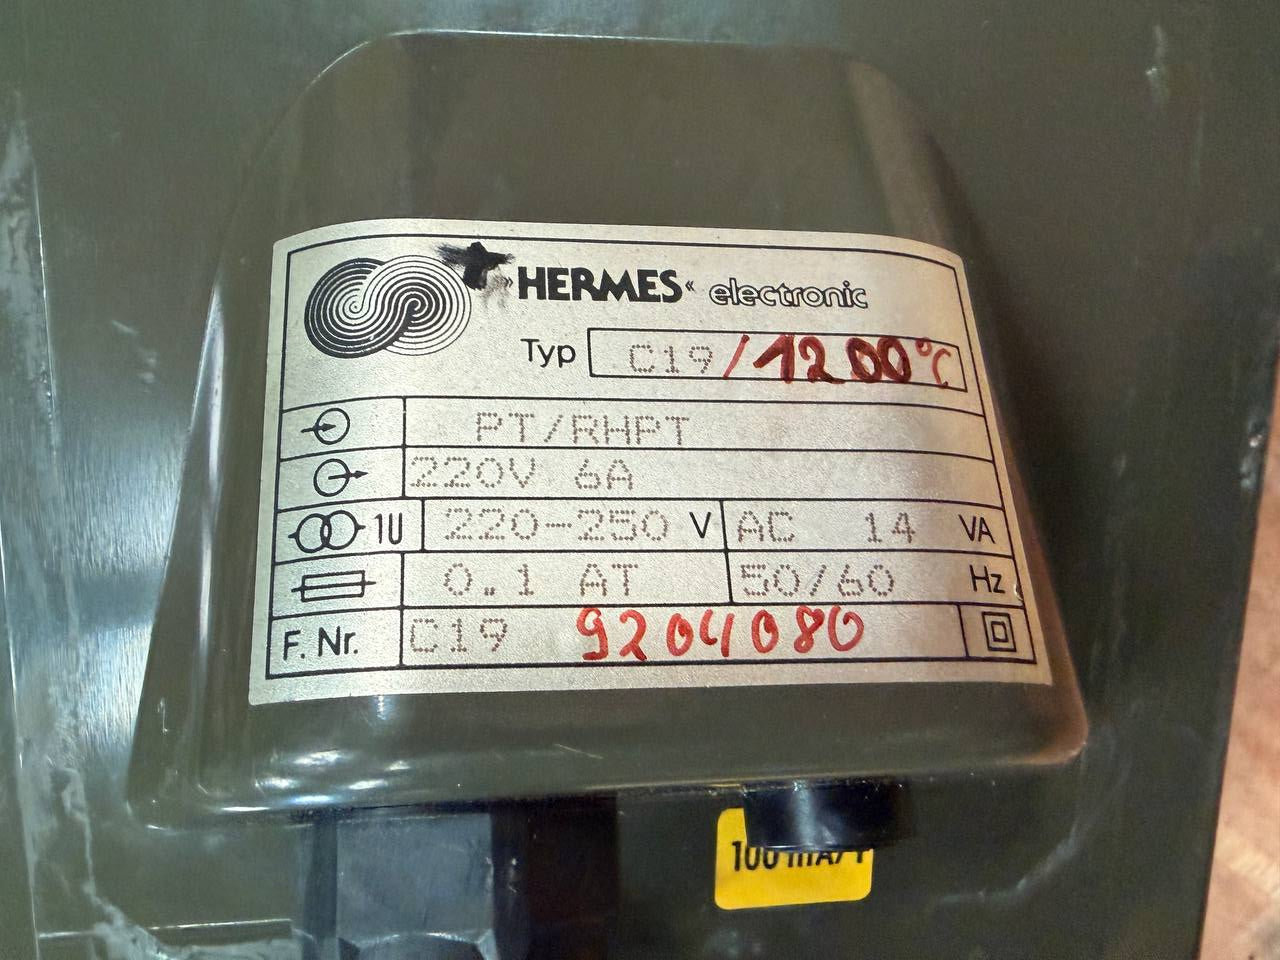 »HERMES« electronic
Typ C19/1200°C
PT/RHPT
220V 6A
1U 220-250 V AC 14 VA
0.1 AT 50/60 Hz
F. Nr. C19 9204080
100 mA/T